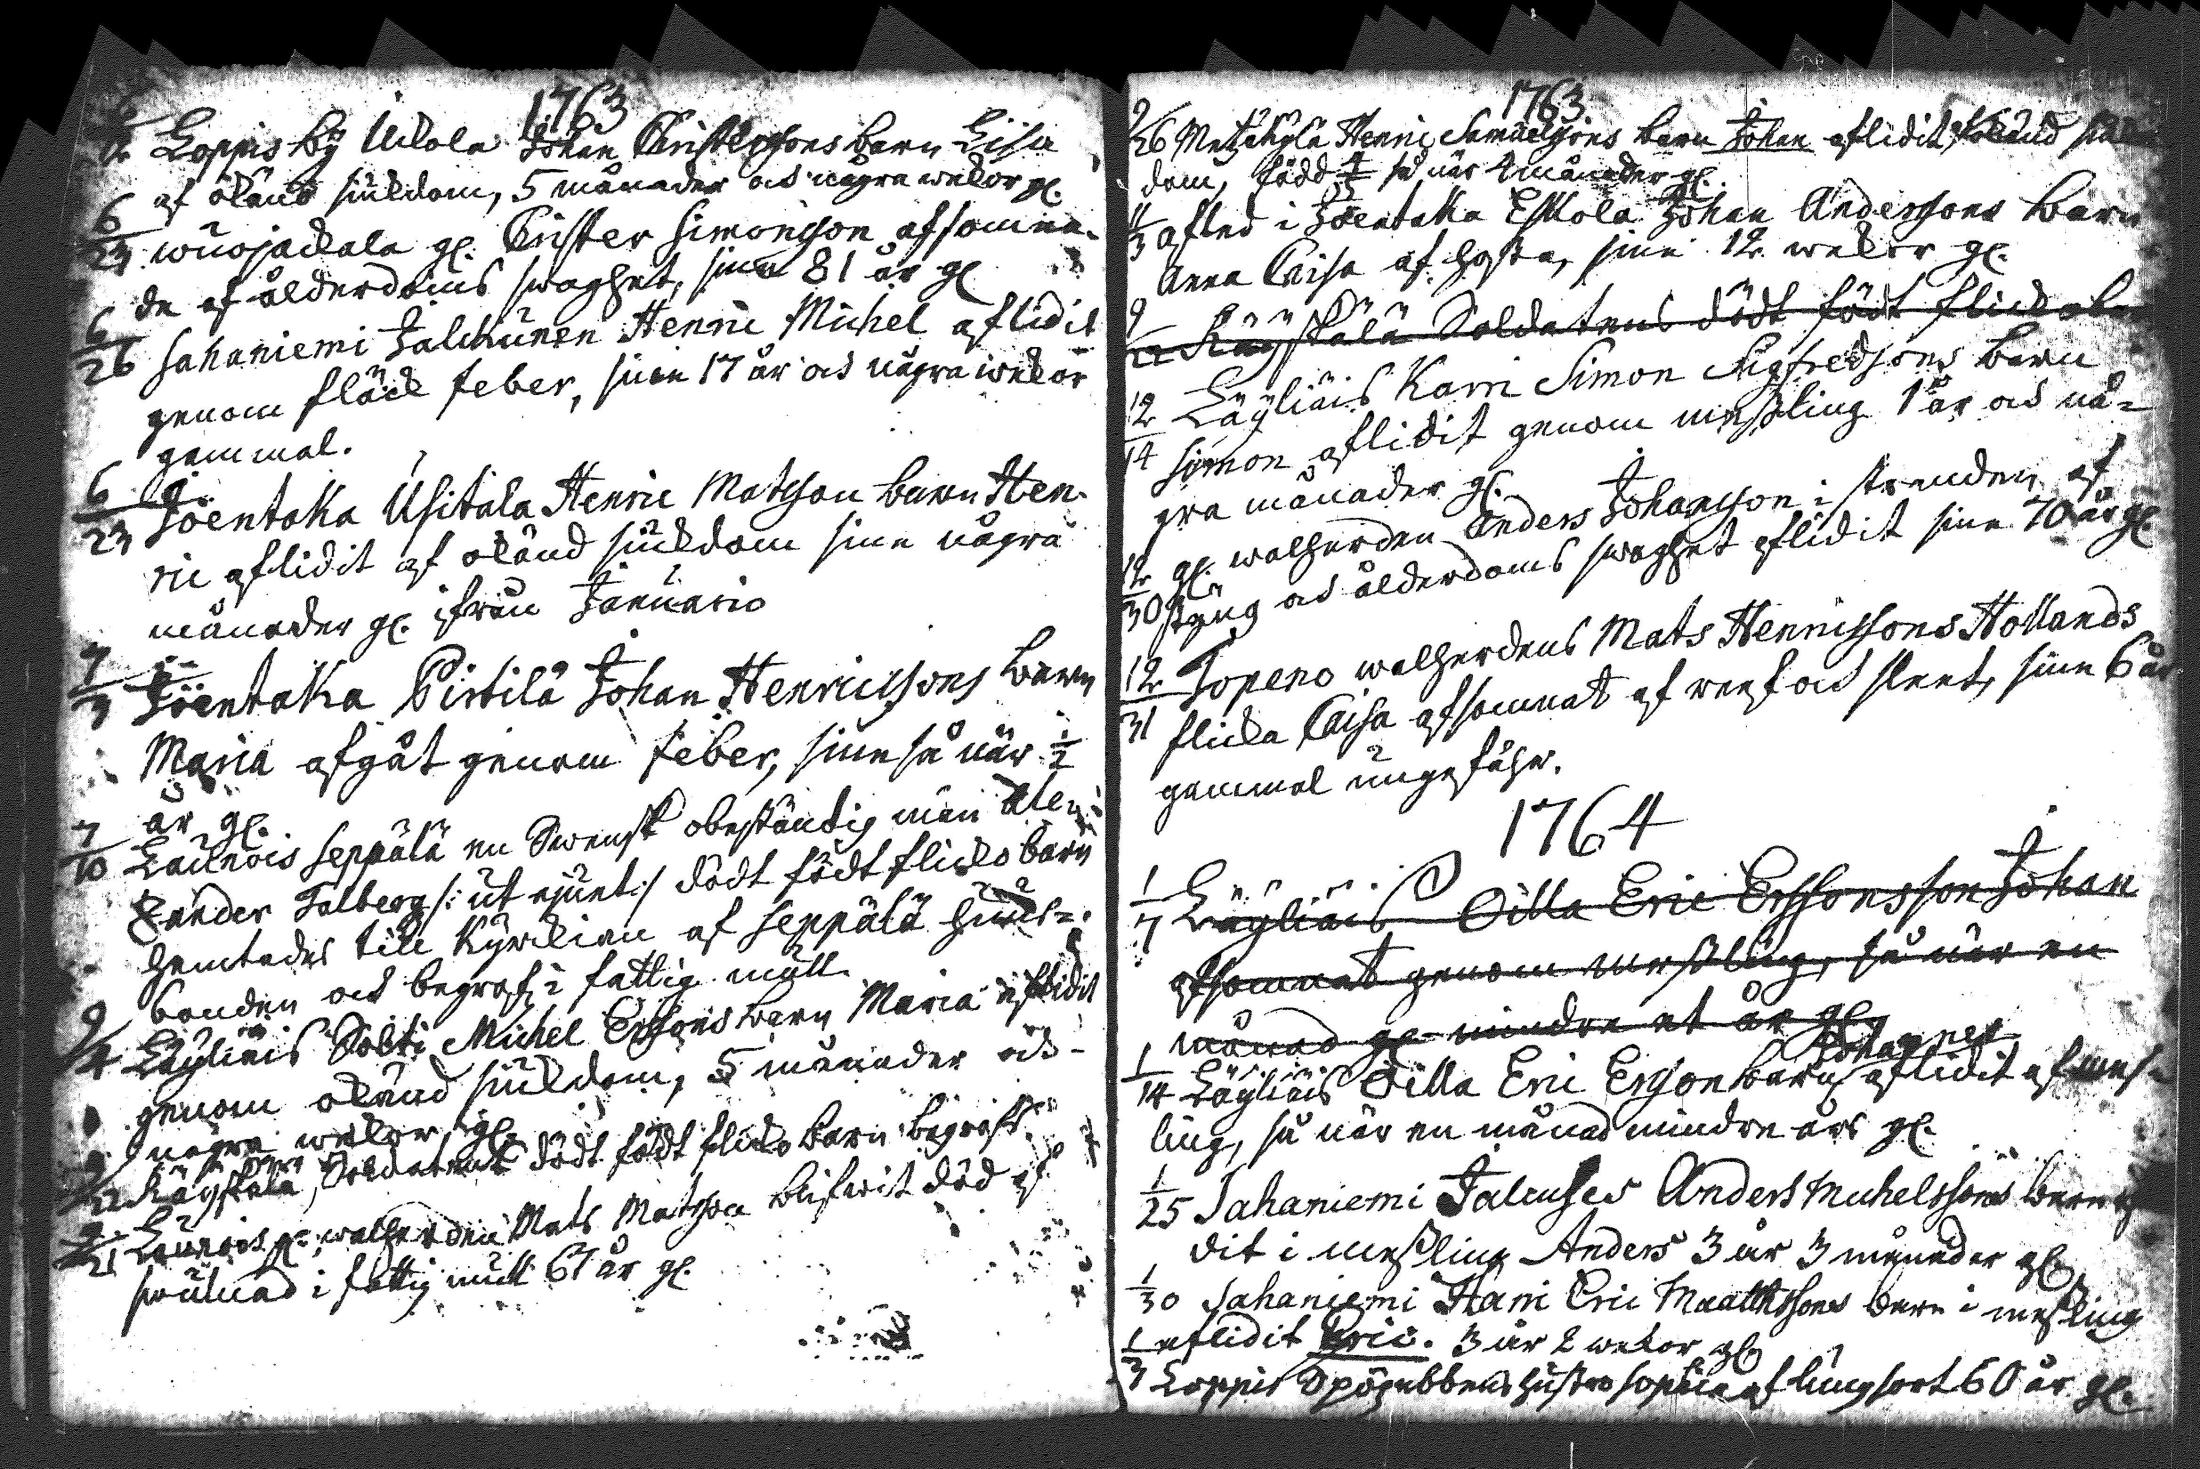 1763
Loppis by Uckola Johan Christerssons barn Lisa
af okänd siukdom, 5 månader och några wekor gl.
6/23 wuojackala gl. Christer Simonsson afsomna-
de af ålderdoms swaghet, sine 81 år gl
6/26 Sahaniemi Jalckunen Henric Michel aflidit
genom fläck feber, sine 17 år och några wekor
gammal.
6/23 Jöentaka Usitala Henric Matsson barn Hen-
ric aflidit af okänd siukdom sine några
månader gl. ifrån Januario
7/3 Jöentaka Pirtilä Johan Henricssons barn
Maria afgåt genom feber, sine så när 1/2
år gl.
7/10 Launois Seppälä en Swensk obeständig man Alex-
ander Talberg /: ut ajunt :/ dödt födt flicko barn
hemtades till Kyrckian af Seppälä huus-
bonden och begrafs i fattig mull
9/4 Läyliäis Solti Michel Erssons barn Maria aflidit
genom okänd siukdom, 5 månader och
några wekor gl.
Räyskälä, Soldatens dödt födt flicko barn begrafs.
21 Launois gl. walherden Mats Matsson blifwit död af
swulnad i fattig mull 67 år gl.
1763
9/26 Metzäkylä Henric Samuelssons barn Johan aflidit, okänd siuk
dom, född så när 4 månader gl.
11/3 afled i Jöentaka Eskola Johan Anderssons barn
Anna Caisa af hosta, sine 12 wekor gl.
9 Räyskälä Soldatens dödt födt flicko
12/14 Läyliäis Karri Simon Sigfredssons barn
Simon aflidit genom messling 1 år och nå-
gra månader gl.
12/30 gl. walherden Anders Johansson i stranden af
styng och ålderdoms swaghet aflidit sine 70 år gl
12/31 Topeno walherdens Mats Henricssons Hollands
flicka Caisa afsomnat af ref och sleet, sine 6 år
gammal ungefähr.
1764
1/7 Läyliäis Oilla Eric Erssons son Johan
afsomnat genom messling, så när en
månad gl mindre et år gl
Johannes
1/14 Läyliäis Oilla Eric Ersson barn aflidit af mes-
ling, så när en månad mindre års gl.
1/25 Sahaniemi Jalcuses Anders Michelssons barn
dit i messling Anders 3 år 3 månader gl
1/30 Sahaniemi Harri Eric Matthssons barn i messling
aflidit Eric. 3 år 2 wekor gl
1/3 Loppis Spögubbens hustro Sophia af lungsoot 60 år gl.